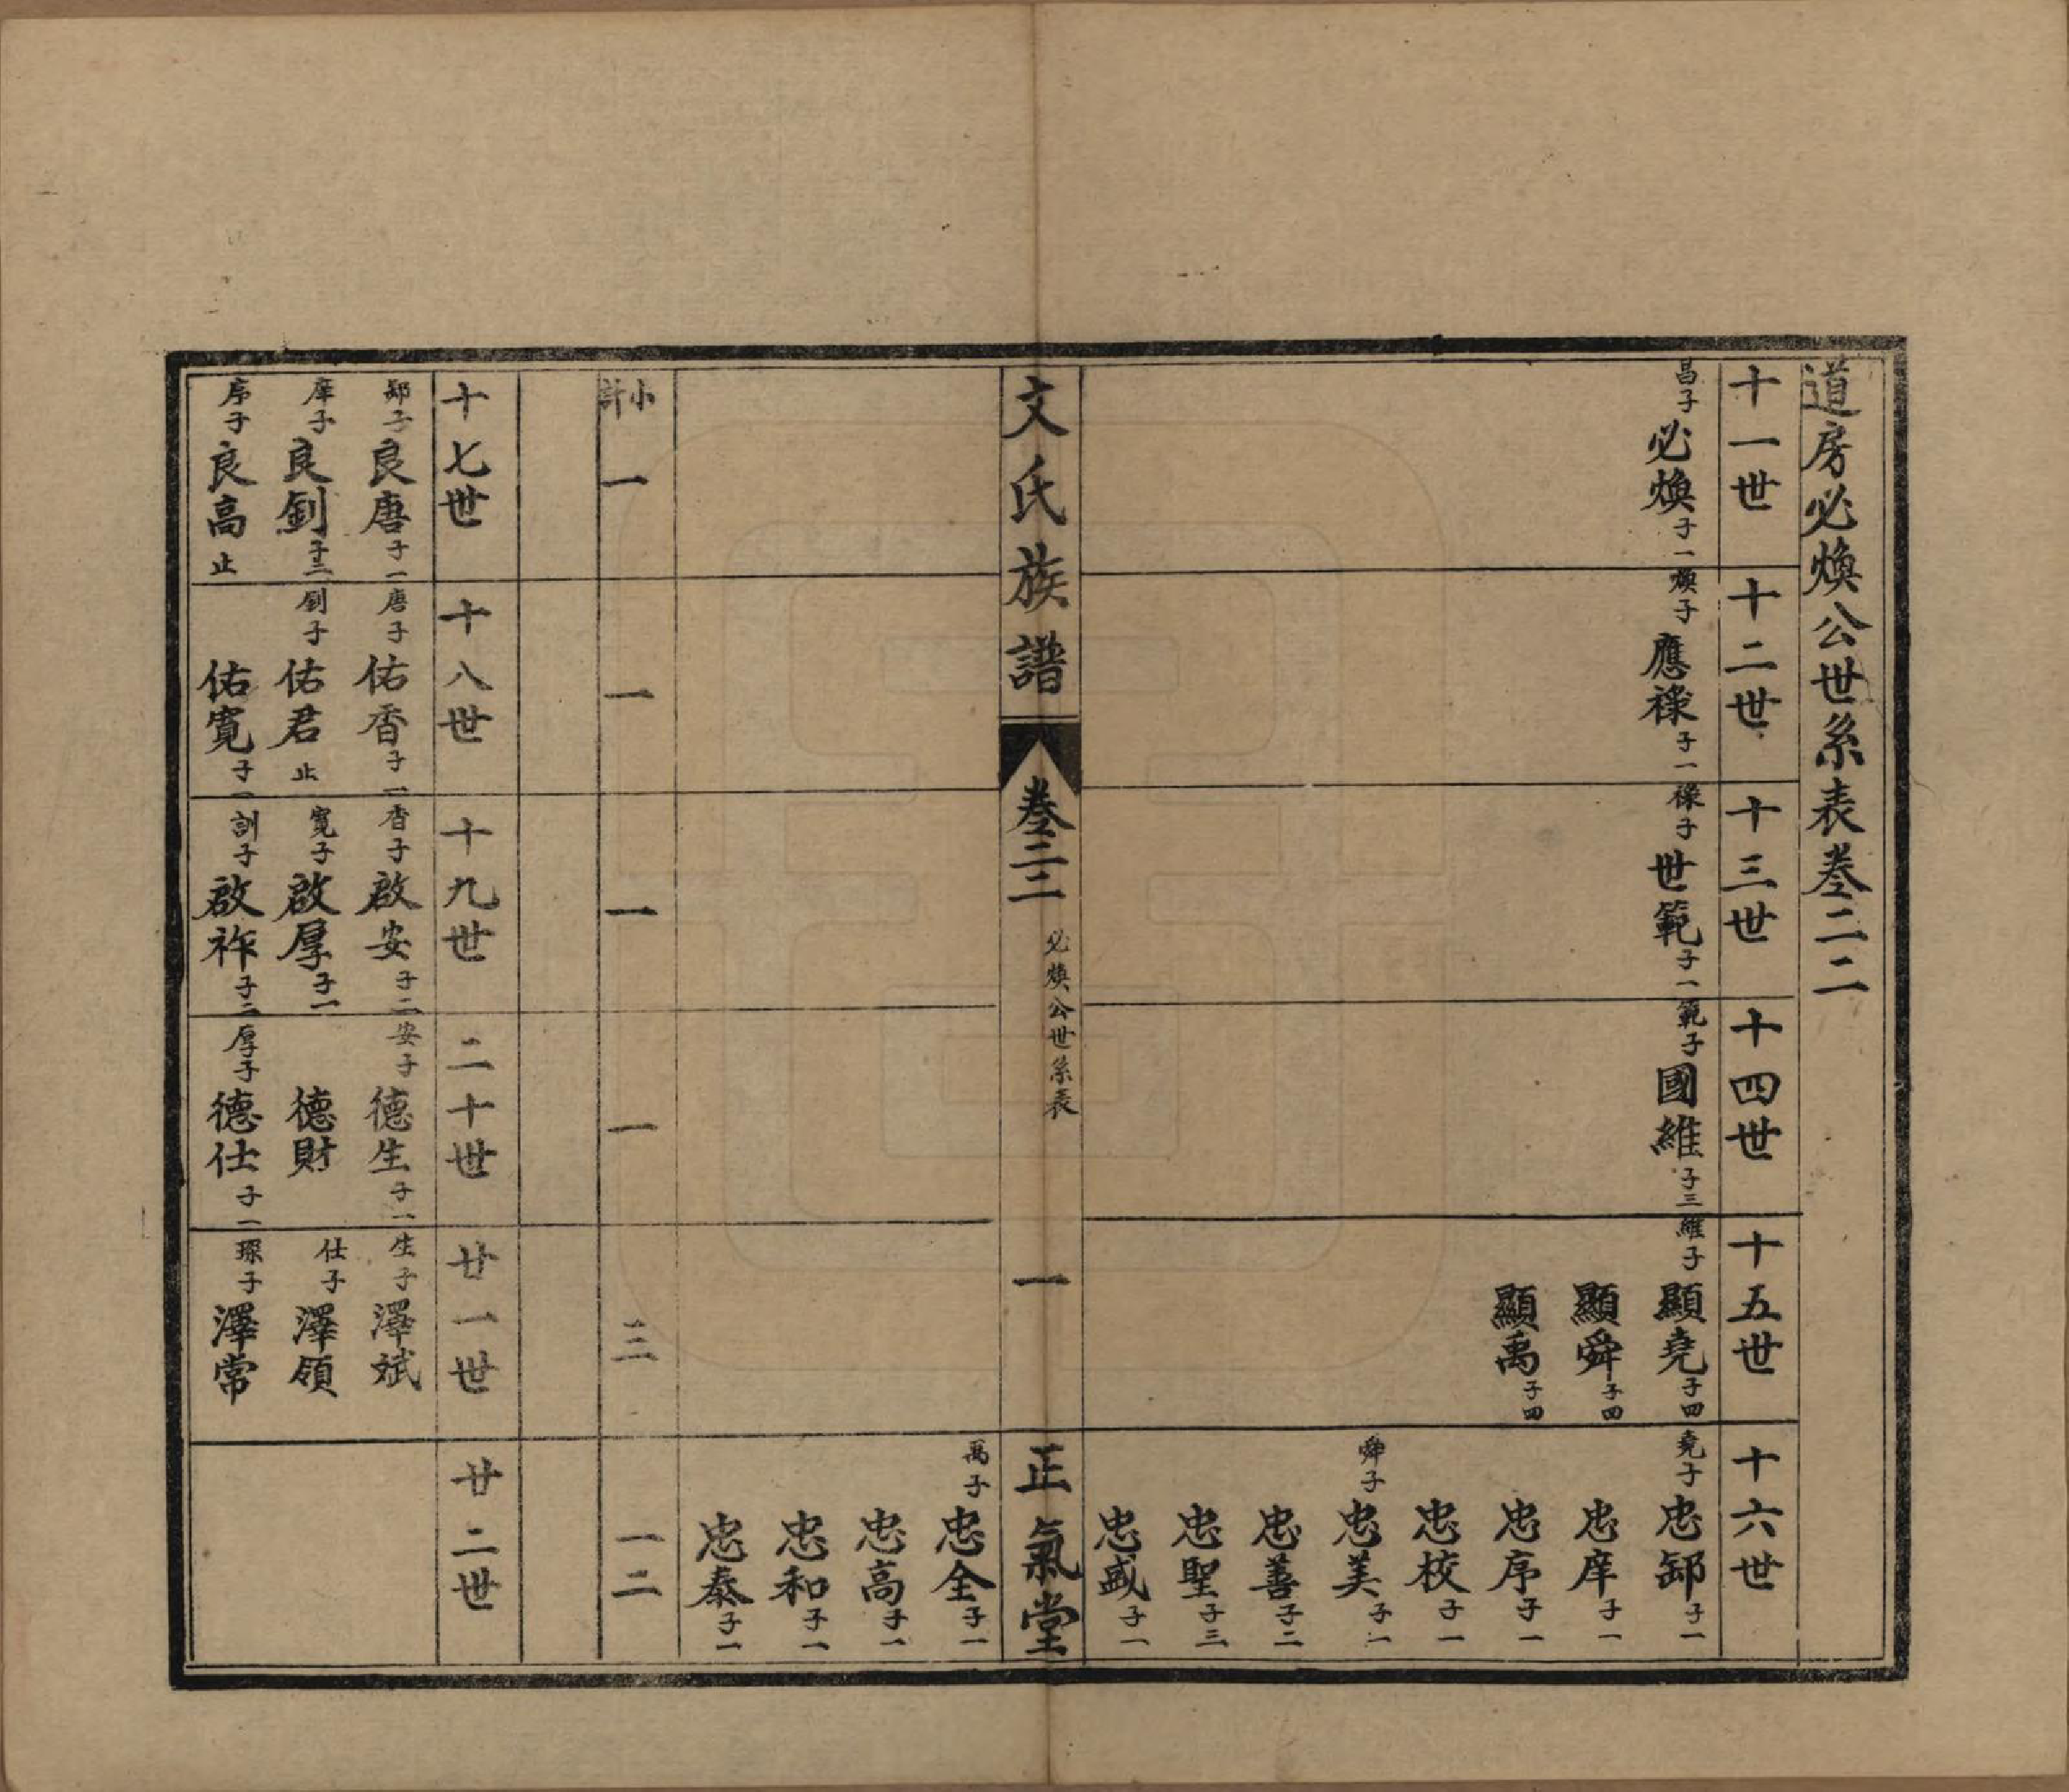 道房必煥公世系表卷二二
十一世
昌子
必煥子一
十二世
煥子
應祿子一
十三世
祿子
世範子一
十四世
範子
國維子三
十五世
維子
顯堯子四
顯舜子四
顯禹子四
十六世
堯子
忠鄒子一
忠庠子一
忠序子一
忠校子一
舜子
忠美子一
忠善子二
忠聖子三
忠盛子一
文氏族譜
卷二二
必煥公世系表
一
正氣堂
禹子
忠全子一
忠高子一
忠和子一
忠泰子一
小計
一
一
一
一
三
一二
十七世
鄒子
良唐子一
庠子
良釗子三
序子
良高止
十八世
唐子
佑香子一
釗子
佑君止
佑寬子一
十九世
香子
啟安子二
寬子
啟厚子一
訓子
啟祚子二
二十世
安子
德生子一
德財
厚子
德仕子一
廿一世
生子
澤斌
仕子
澤領
琛子
澤常
廿二世